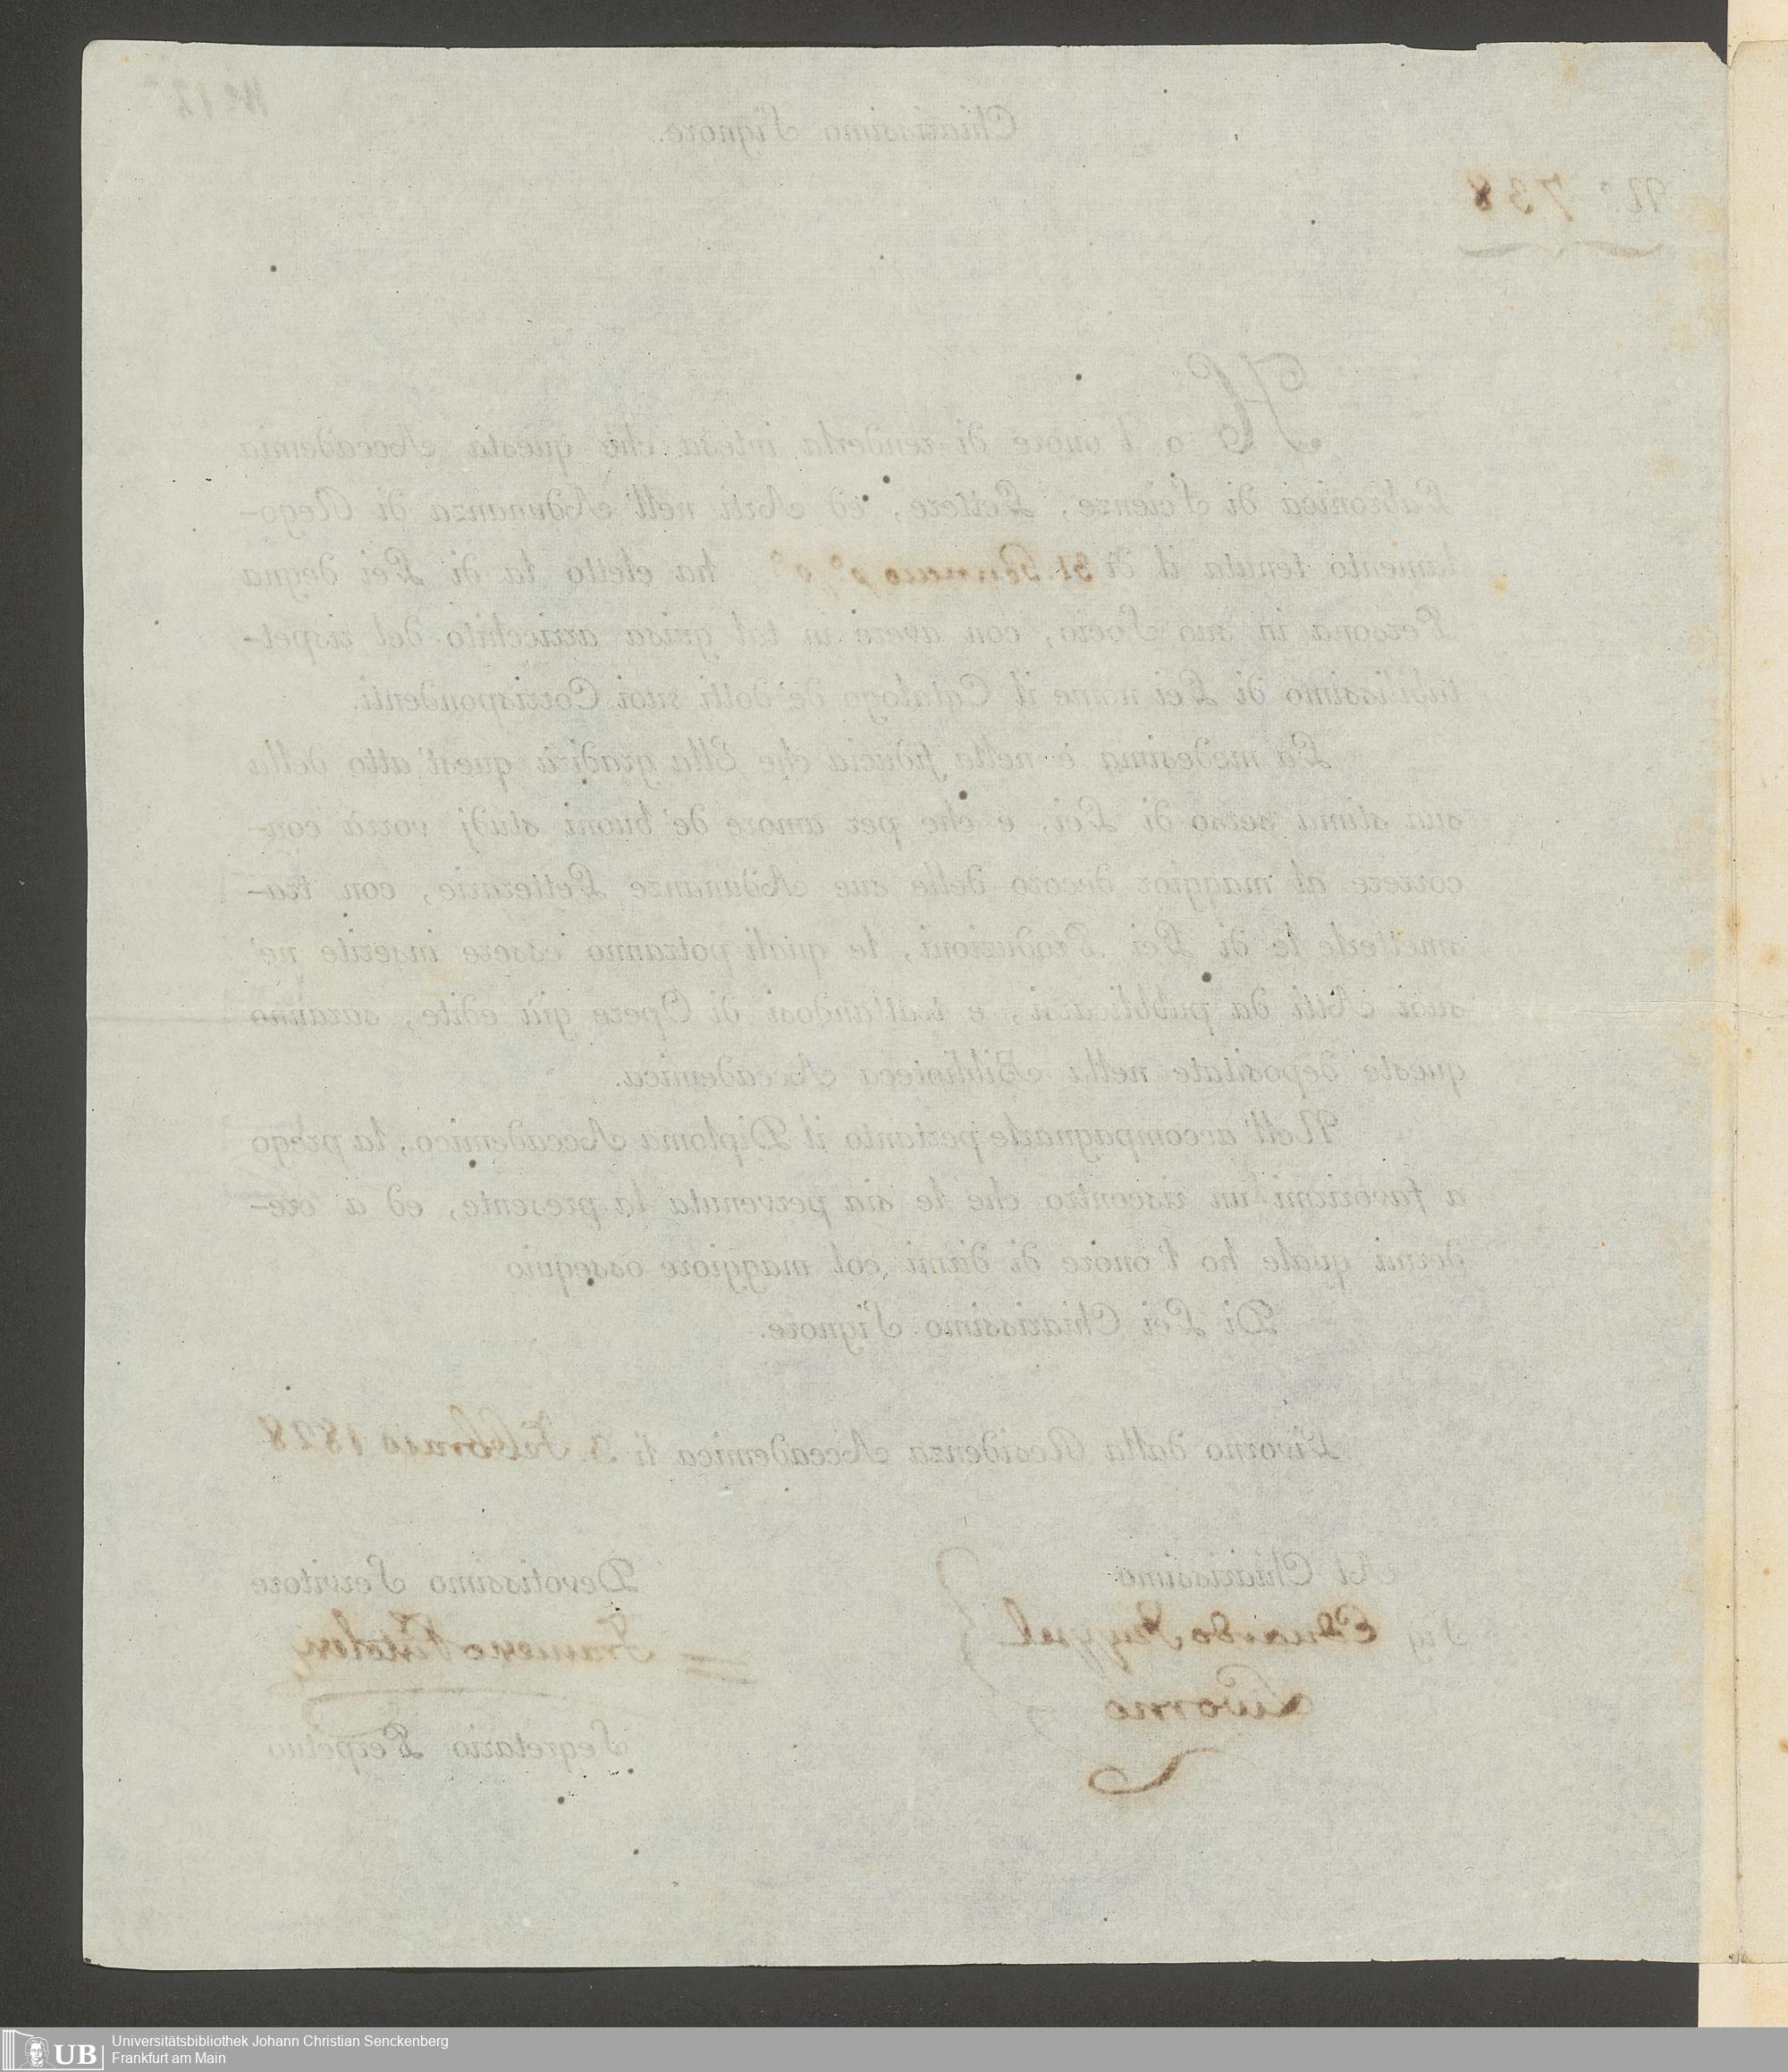 No. 12
Chiarissimo Signore.
N.° 738
Ho l'onore di renderla intesa che questa Accademia
Labronica di Scienze, Lettere, ed Arti nell'Adunanza di Rego-
lamento tenuta il dì 31. Gennaio p.° p.° ha eletto la di Lei degna
Persona in suo Socio, con avere in tal guisa arricchito del rispet-
tabilissimo di Lei nome il Catalogo de' dotti suoi Corrispondenti.
La medesima è nella fiducia che Ella gradirà quest'atto della
sua stima verso di Lei, e che per amore de' buoni studj vorrà con-
correre al maggior decoro delle sue Adunanze Letterarie, con tra-
smetterle le di Lei Produzioni, le quali potranno essere inserite ne'
suoi Atti da pubblicarsi, e trattandosi di Opere già edite, saranno
queste depositate nella Biblioteca Accademica.
Nell'accompagnarle pertanto il Diploma Accademico, la prego
a favorirmi un riscontro che le sia pervenuta la presente, ed a cre-
dermi quale ho l'onore di dirmi col maggiore ossequio
Di Lei Chiarissimo Signore.
Livorno dalla Residenza Accademica li 3. Febbraio 1828
Al Chiarissimo
Sig. Eduardo
Livorno
Devotissimo Servitore
Francesco Pistolesi
Segretario Perpetuo
UB
Universitätsbibliothek Johann Christian Senckenberg
Frankfurt am Main